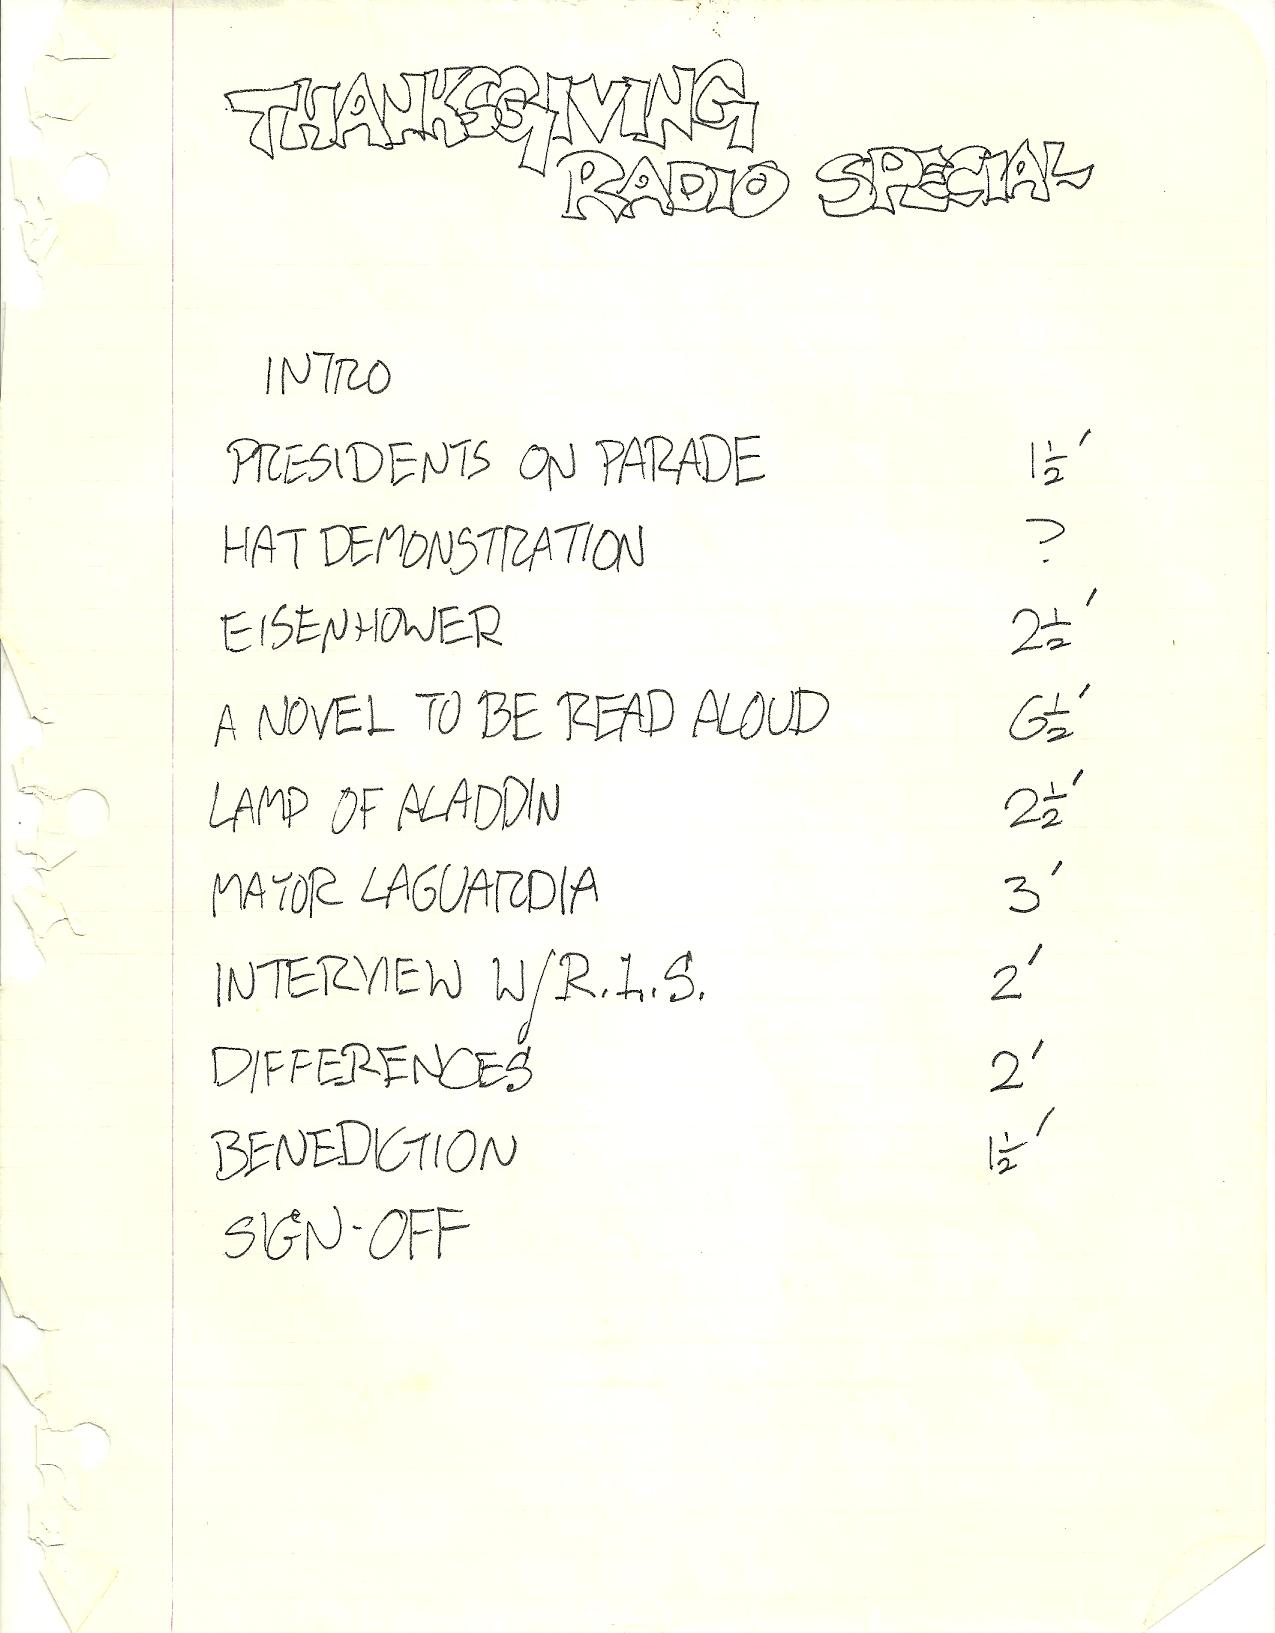 THANKSGIVING
RADIO SPECIAL
INTRO
PRESIDENTS ON PARADE 1½′
HAT DEMONSTRATION ?
EISENHOWER 2½′
A NOVEL TO BE READ ALOUD 6½′
LAMP OF ALADDIN 2½′
MAYOR LAGUARDIA 3′
INTERVIEW W/R.L.S. 2′
DIFFERENCES 2′
BENEDICTION 1½′
SIGN-OFF